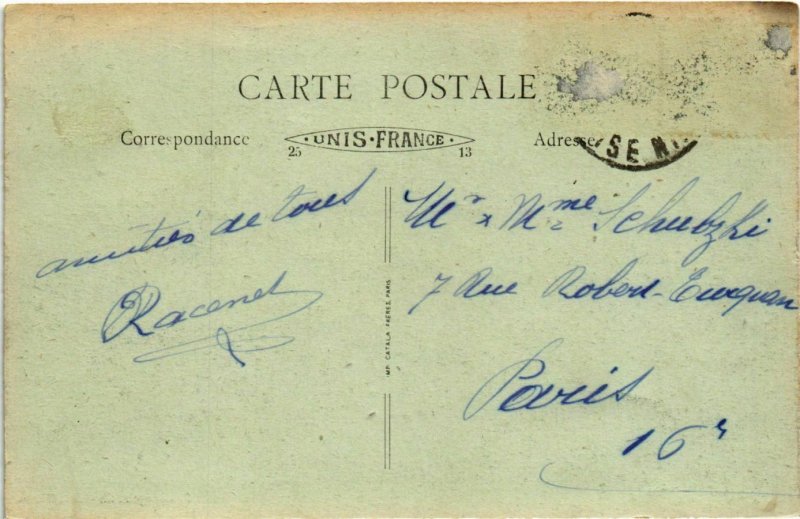 CARTE POSTALE
Correspondance
UNIS·FRANCE·
25 13
Adresse
SEN
amitiés de tous
Racenet
Mr & Mme Schubzki
7 Rue Robert-Turquan
Paris
16e
IMP. CATALA FRÈRES, PARIS